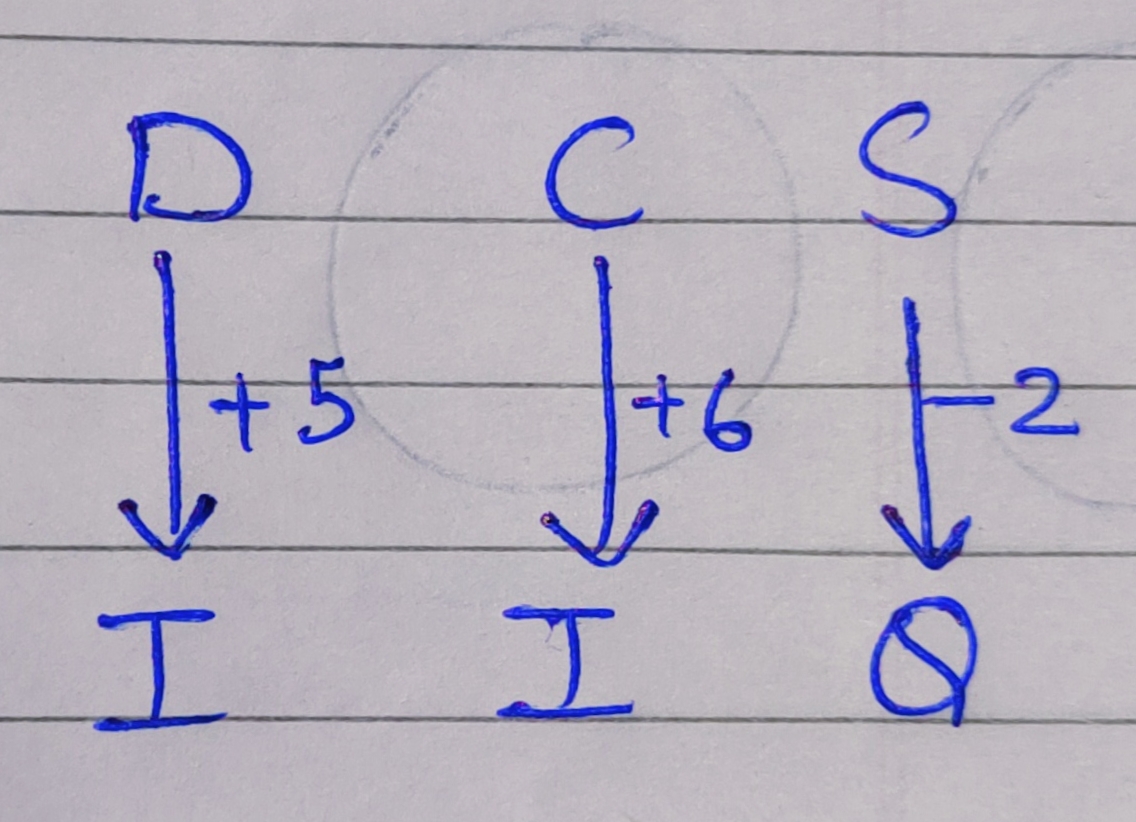 D C S
+5 +6 -2
I I Q